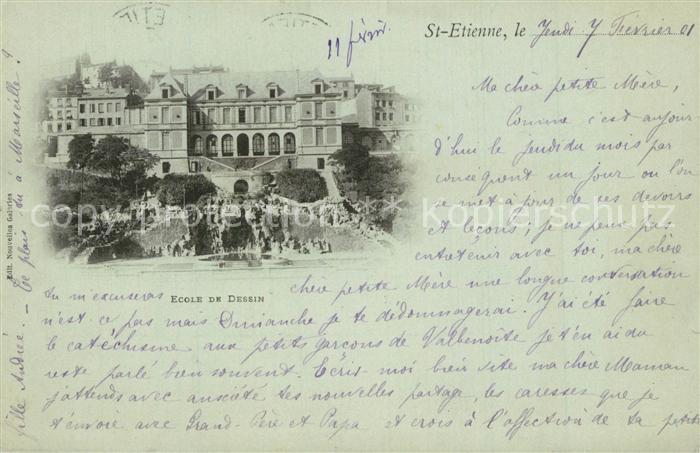 St-Etienne, le Jeudi 7 Février 01
11 févr.
Ma chère petite Mère,
Comme c'est aujour-
d'hui le Jeudi du mois par
conséquent un jour où l'on
se met à jour de ses devoirs
et leçons; je ne peux pas
entretenir avec toi, ma chère
chère petite Mère une longue conversation
tu m'excuseras
n'est ce pas mais Dimanche je te dédommagerai. J'ai été faire
le catéchisme aux petits garçons de Valbenoîte je t'en ai du
reste parlé bien souvent. Écris moi bien vite ma chère Maman
j'attends avec anxiété tes nouvelles partage, les caresses que je
t'envoie avec Grand-Père et Papa et crois à l'affection de ta petite
fille Andrée. - Te plais tu à Marseille?
ECOLE DE DESSIN
Edit. Nouvelles Galeries
copy protection Kopierschutz